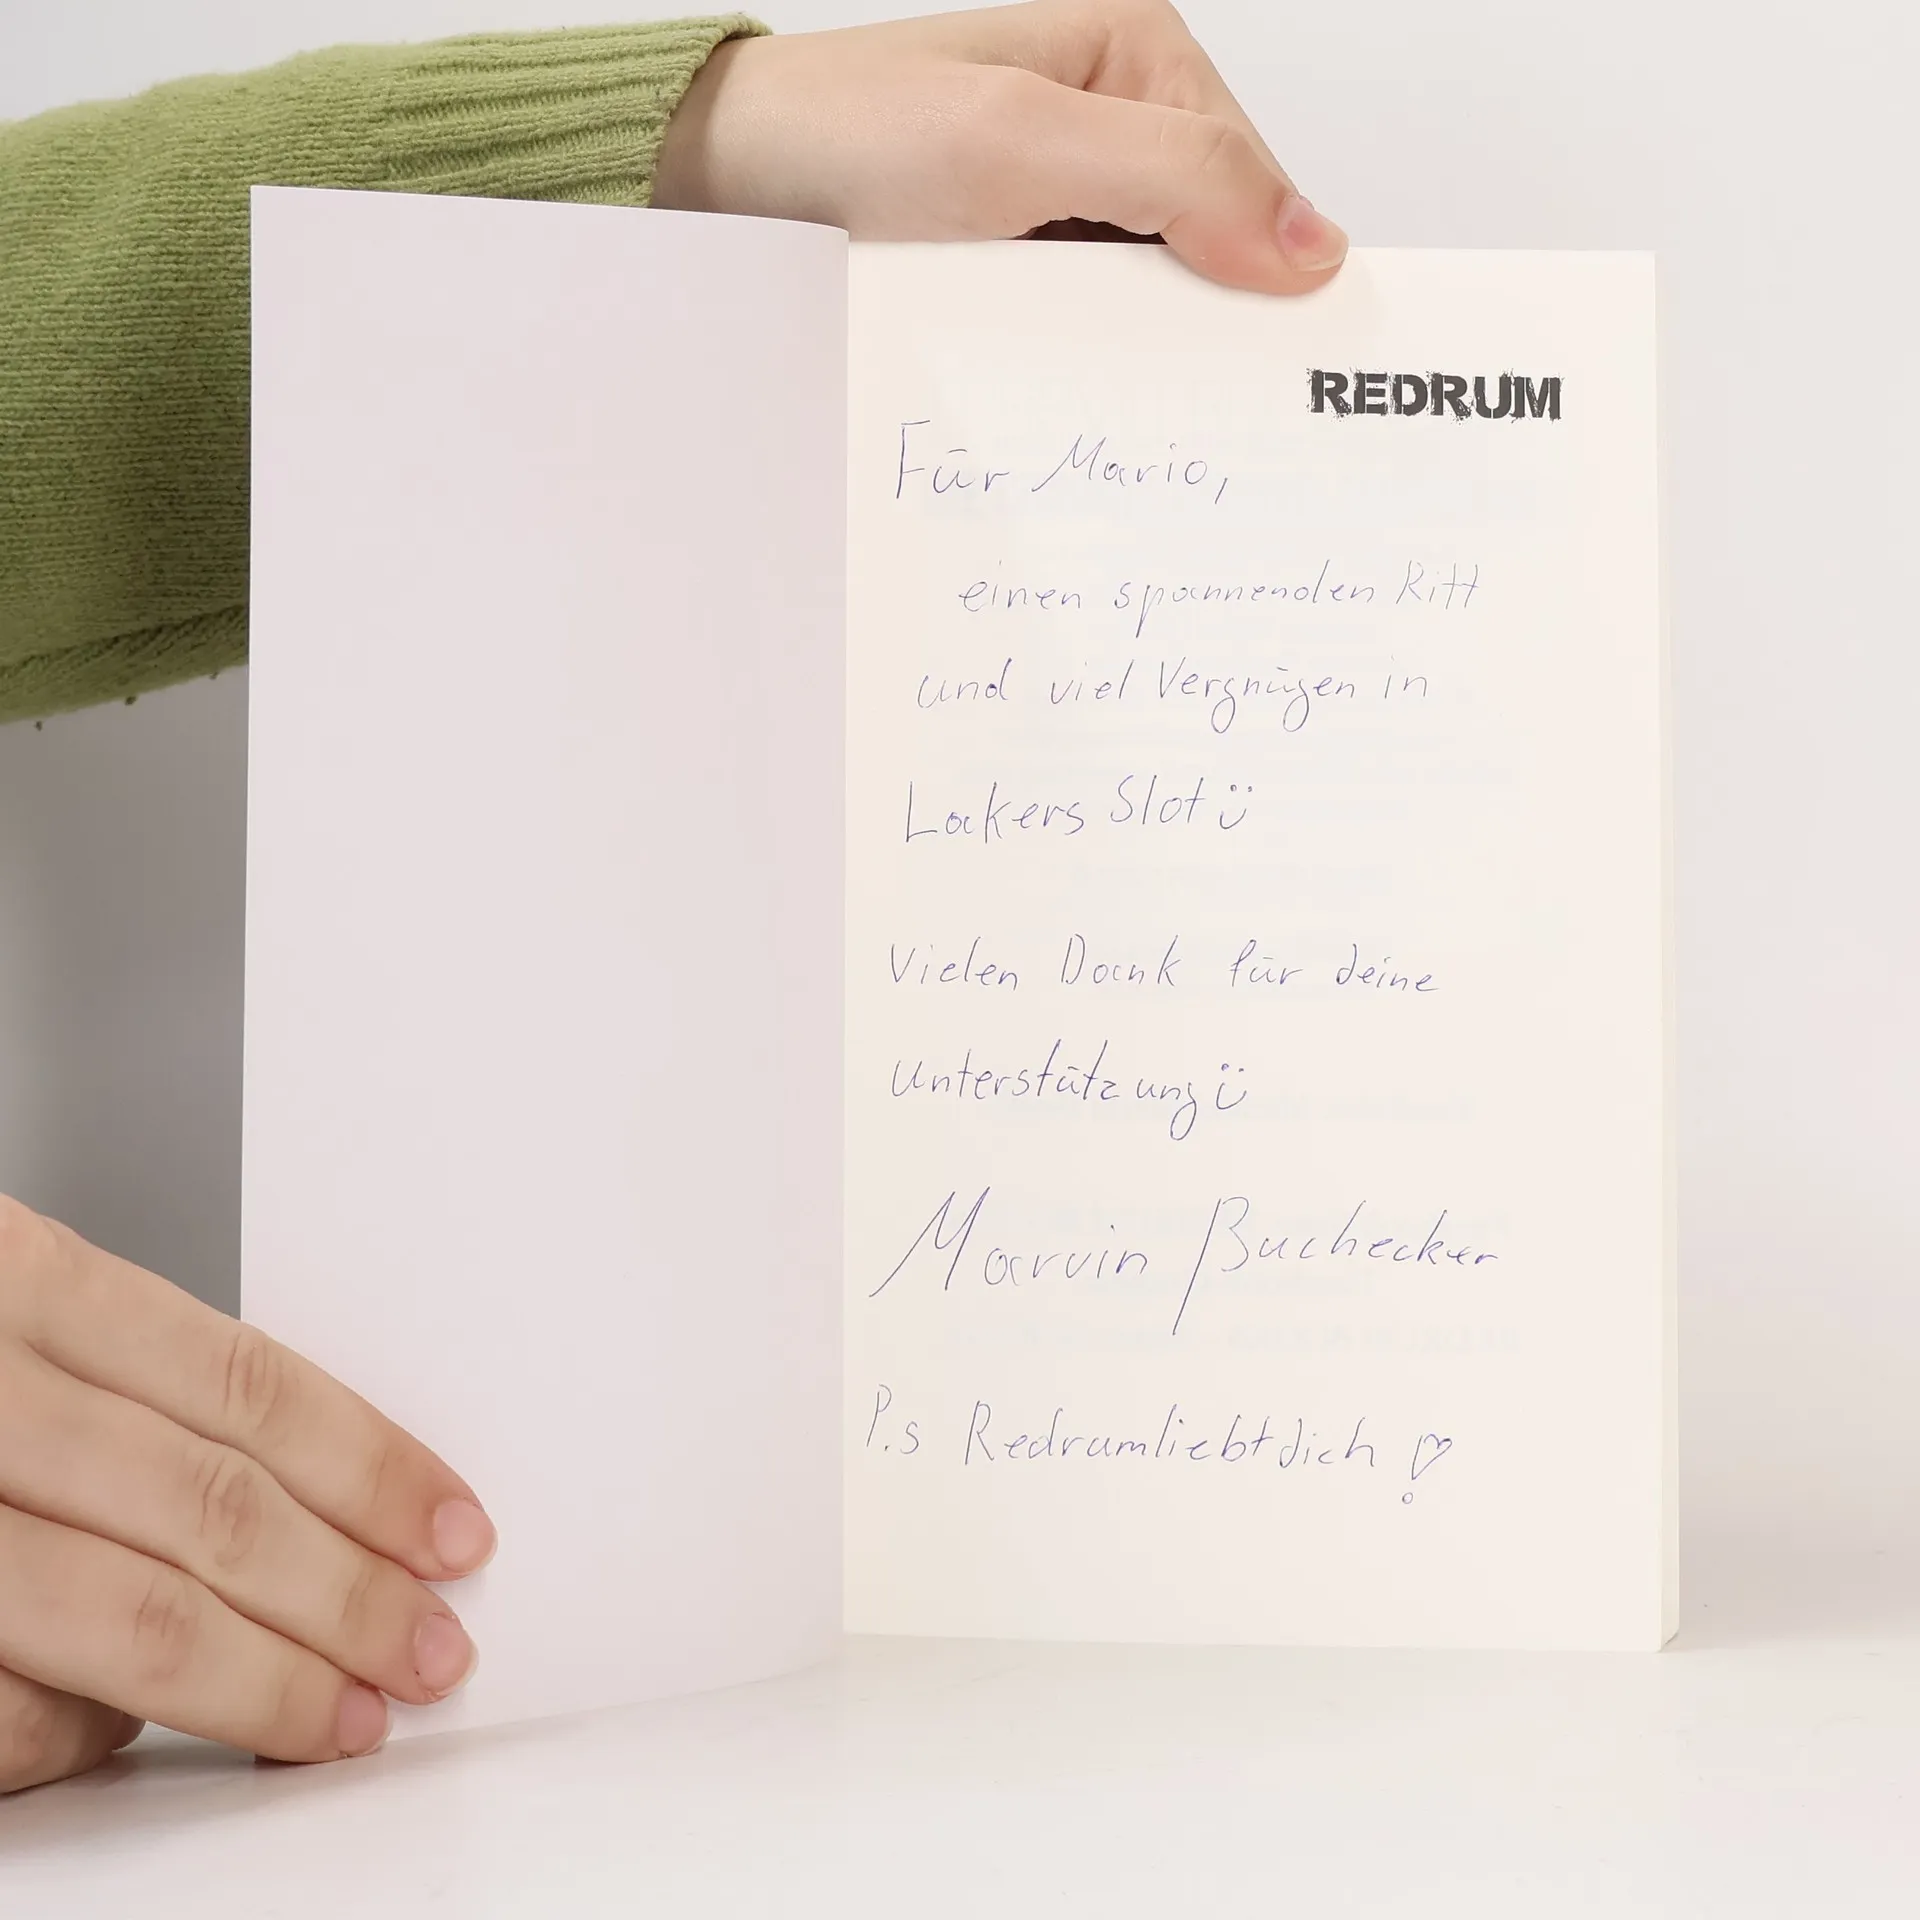 REDRUM
Für Mario,
einen spannenden Ritt
und viel Vergnügen in
Lakers Slot ü
Vielen Dank für deine
Unterstützung ü
Marvin Buchecker
P.s Redrumliebtdich !